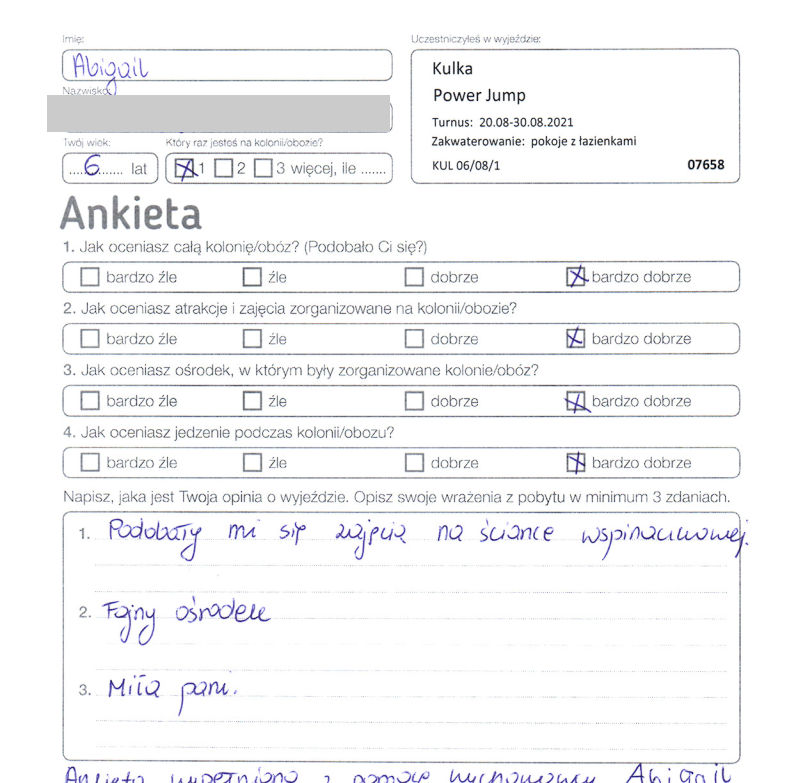 Imię:
Abigail
Nazwisko:
Twój wiek:
6 lat
Który raz jesteś na kolonii/obozie?
1 2 3 więcej, ile .......
Uczestniczyłeś w wyjeździe:
Kulka
Power Jump
Turnus: 20.08-30.08.2021
Zakwaterowanie: pokoje z łazienkami
KUL 06/08/1 07658
Ankieta
1. Jak oceniasz całą kolonię/obóz? (Podobało Ci się?)
bardzo źle źle dobrze bardzo dobrze
2. Jak oceniasz atrakcje i zajęcia zorganizowane na kolonii/obozie?
bardzo źle źle dobrze bardzo dobrze
3. Jak oceniasz ośrodek, w którym były zorganizowane kolonie/obóz?
bardzo źle źle dobrze bardzo dobrze
4. Jak oceniasz jedzenie podczas kolonii/obozu?
bardzo źle źle dobrze bardzo dobrze
Napisz, jaka jest Twoja opinia o wyjeździe. Opisz swoje wrażenia z pobytu w minimum 3 zdaniach.
1. Podobały mi się zajęcia na ściance wspinaczkowej.
2. Fajny ośrodek
3. Miła pani.
Ankieta wypełniona z pomocą wychowawcy Abigail